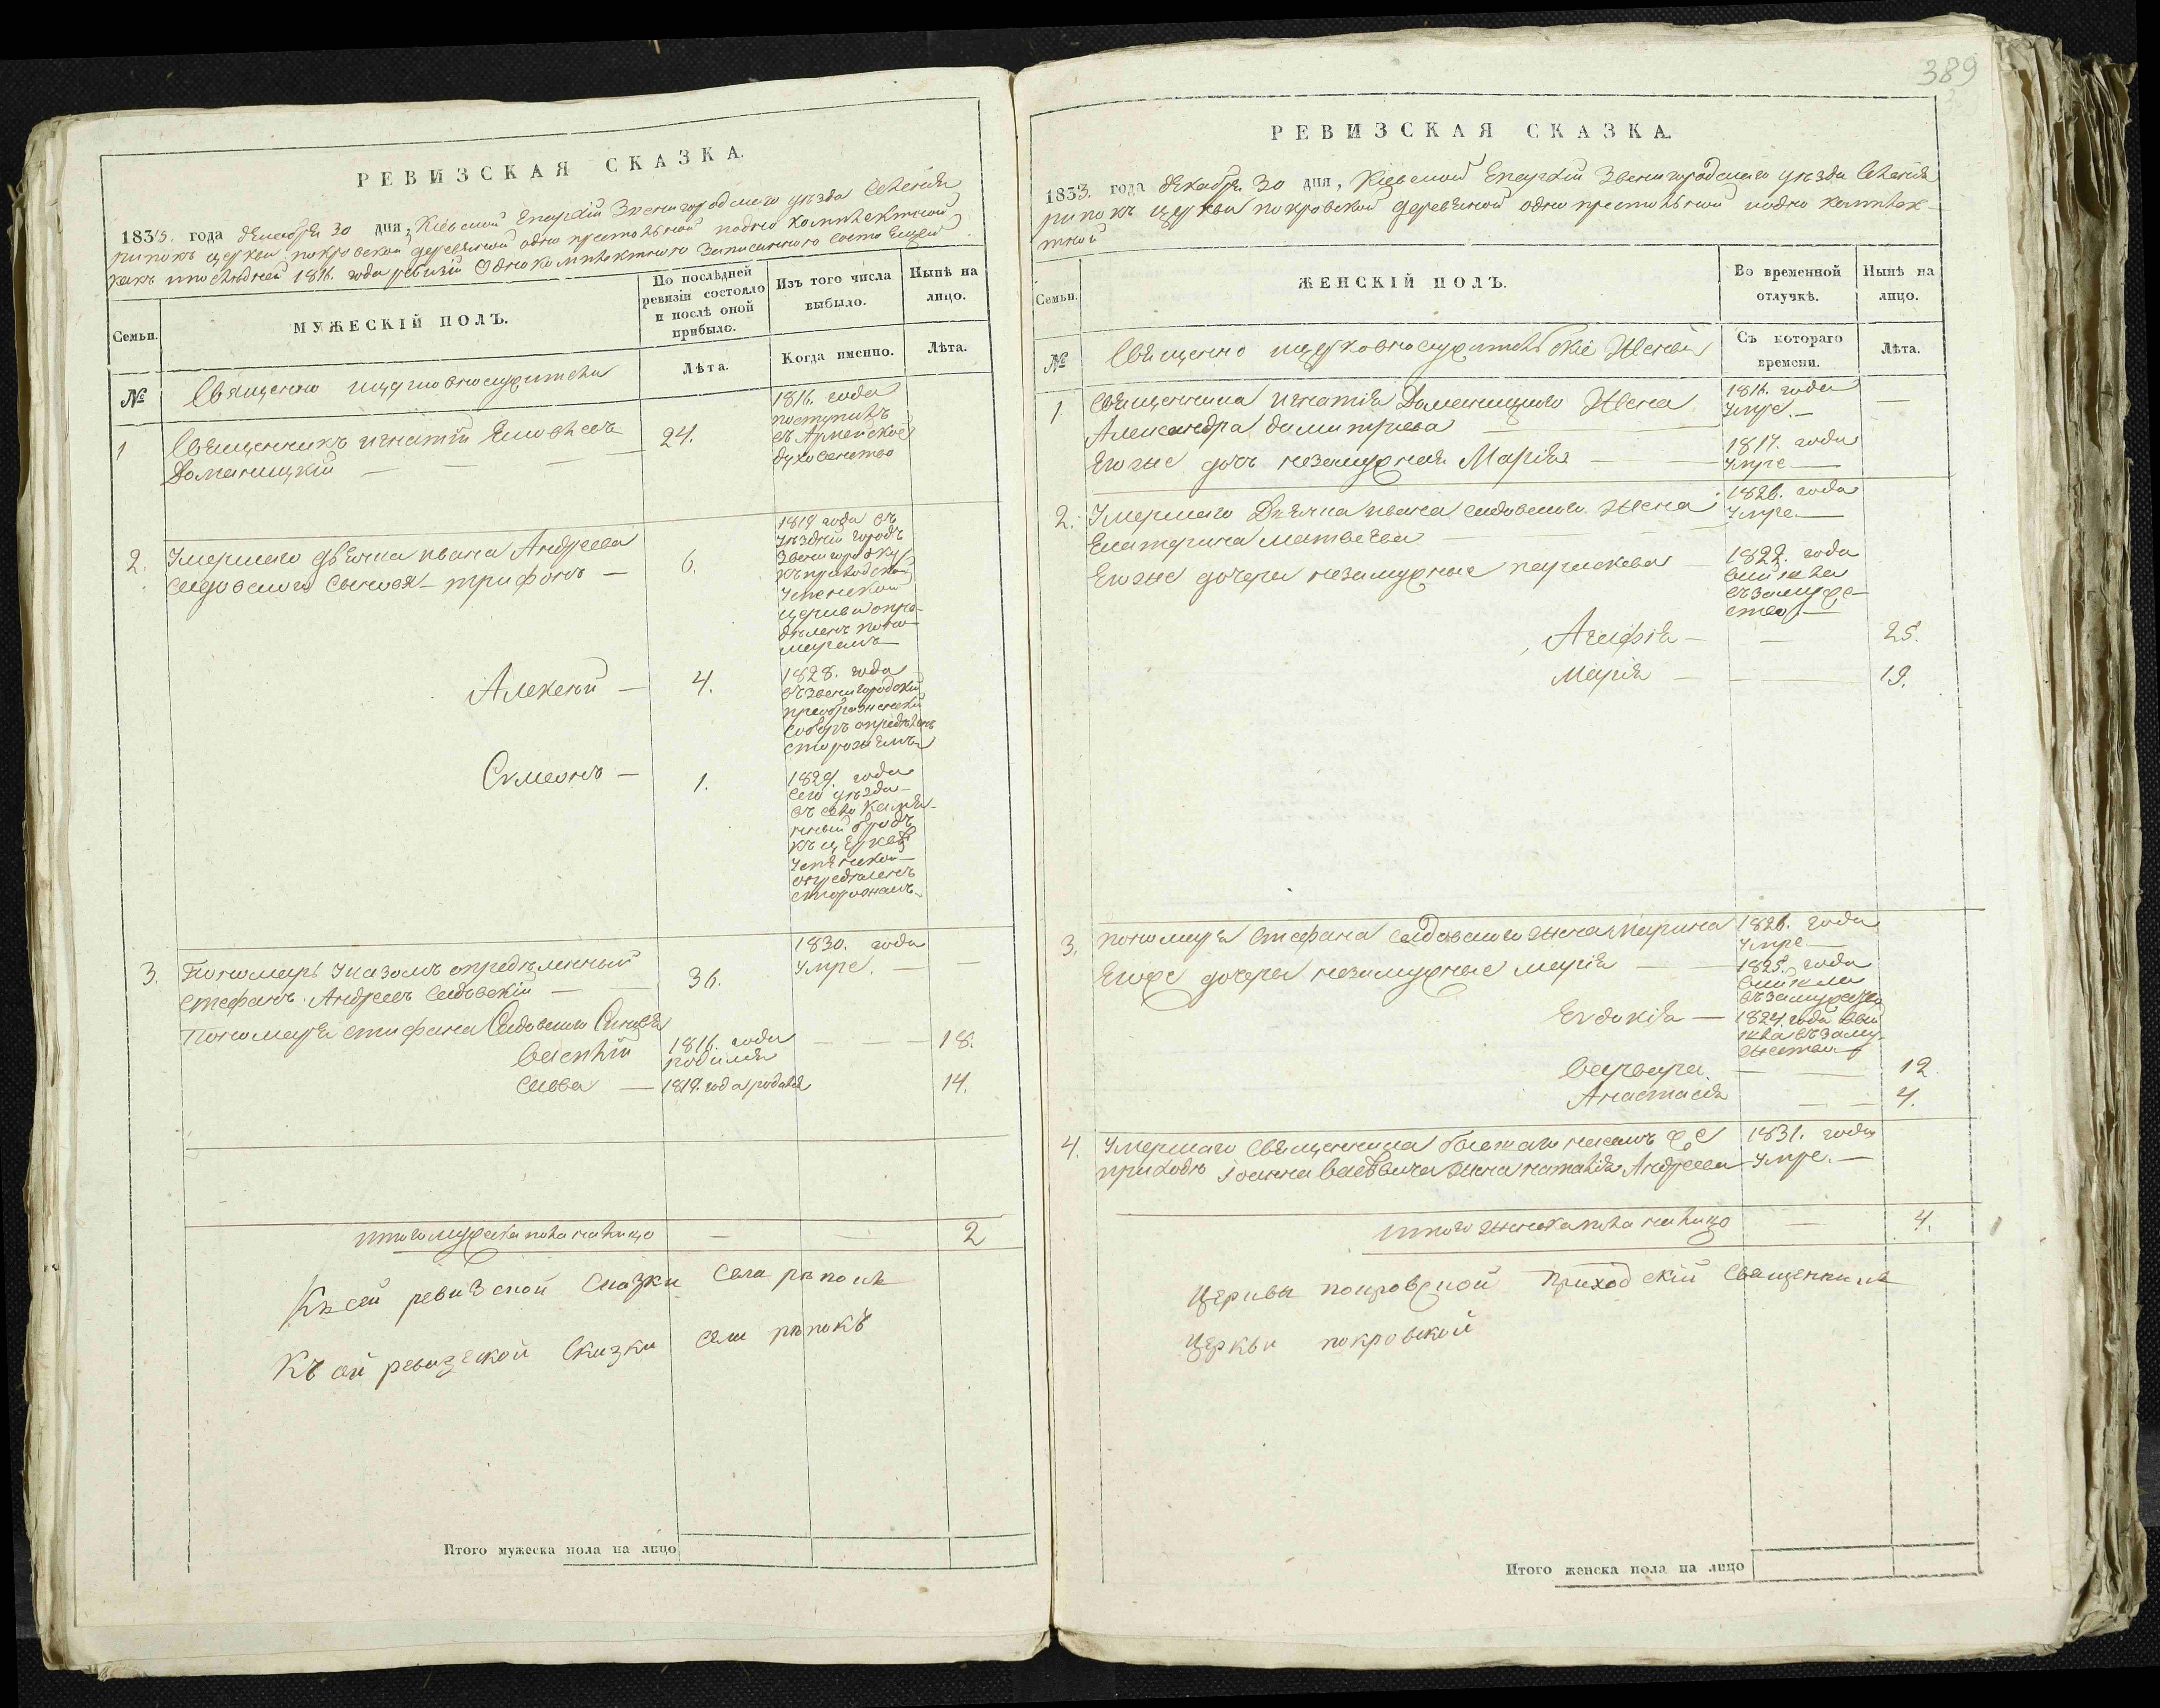 РЕВИЗСКАЯ СКАЗКА.
1833. года декабря 30 дня, Кіевской Епархіи Звенигородскаго уѣзда Селенія
рипокъ церкви покровской деревяной одно престольной подно комплектной
какъ попослѣдней 1816. года ревизіи однокомплектного записанного состоящей
Семьи.
МУЖЕСКІЙ ПОЛЪ.
По послѣдней
ревизіи состояло
и послѣ оной
прибыло.
Изъ того числа
выбыло.
Нынѣ на
лицо.
№
Священно ицерковнослужители
Лѣта.
Когда именно.
Лѣта.
1
Священникъ игнатій
Доманицкій — — —
24.
1816. года
поступилъ
въ Армейское
духовенство
2.
Умершаго дьячка ивана Андреева
Садовского Сыновя трифонъ —
6.
1819 года въ
уѣздній городъ
Звенигородку
къ приходской
успенской
церкви опре-
дѣленъ поно-
маремъ
Алексѣй —
4.
1828. года
въ звенигородскій
преображенскій
Соборъ опредѣленъ
сторожемъ
Сѵмеонъ —
1.
1829. года
сего уѣзда
въ село Камя-
нный бродъ
къ церквѣ
успенской
опредѣленъ
сторожемъ
3.
Пономарь указомъ опредѣленный
Стефанъ Андреевъ Садовскій —
36.
1830. года
умре. —
—
Пономаря стефана Садовского Сыновя
Василій
1816. года
родился
— — —
18.
Савва —
1819. года родился
14.
итого мужеска пола налицо
— —
2
Къ сей ревизской Сказки Села рѣпокъ
Къ сей ревизской Сказки Села рѣпокъ
Итого мужеска пола на лицо
389
РЕВИЗСКАЯ СКАЗКА.
1833. года декабря 30 дня, Кіевской Епархіи Звенигородскаго уѣзда Селенія
рипокъ церкви покровской деревяной одно престольной подно комплек-
тной
Семьи.
ЖЕНСКІЙ ПОЛЪ.
Во временной
отлучкѣ.
Нынѣ на
лицо.
№
Священно ицерковнослужительскіе Жены
Съ котораго
времени.
Лѣта.
1
Священника игнатія Доманицкого Жена
Александра димитріева —
1816. года
умре. —
—
Егоже дочь незамужная Марія —
1817. года
умре —
2.
Умершаго Дьячка ивана садовского жена
Екатерина матвеева —
1826. года
умре. —
Егоже дочери незамужные параскева —
1822. года
вийшла
въ замуже-
ство —
Агафія —
—
25.
Марія —
—
19.
3.
пономаря стефана садовского жена марина
1826. года
умре —
Егоже дочери незамужные марія —
1825. года
вийшла
въ замужество
Евдокія —
1824 года вый
шла въ заму-
жество
варвара
— —
12.
Анастасія
— —
4.
4.
Умершаго Священника
приходо іоанна жена наталія Андреева
1831. года
умре. —
итого женска пола налицо
—
4.
Церквы покровской Приходскій Священникъ
Церкви покровской
Итого женска пола на лицо